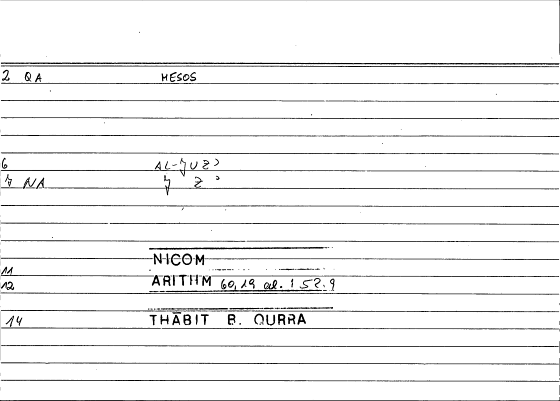 2 QA MESOS
6 AL-ɈUZ᾿
7 NA Ɉ Z ᾿
NICOM
11
12 ARITHM 60,19 al. : 52.9
14 THĀBIT B. QURRA